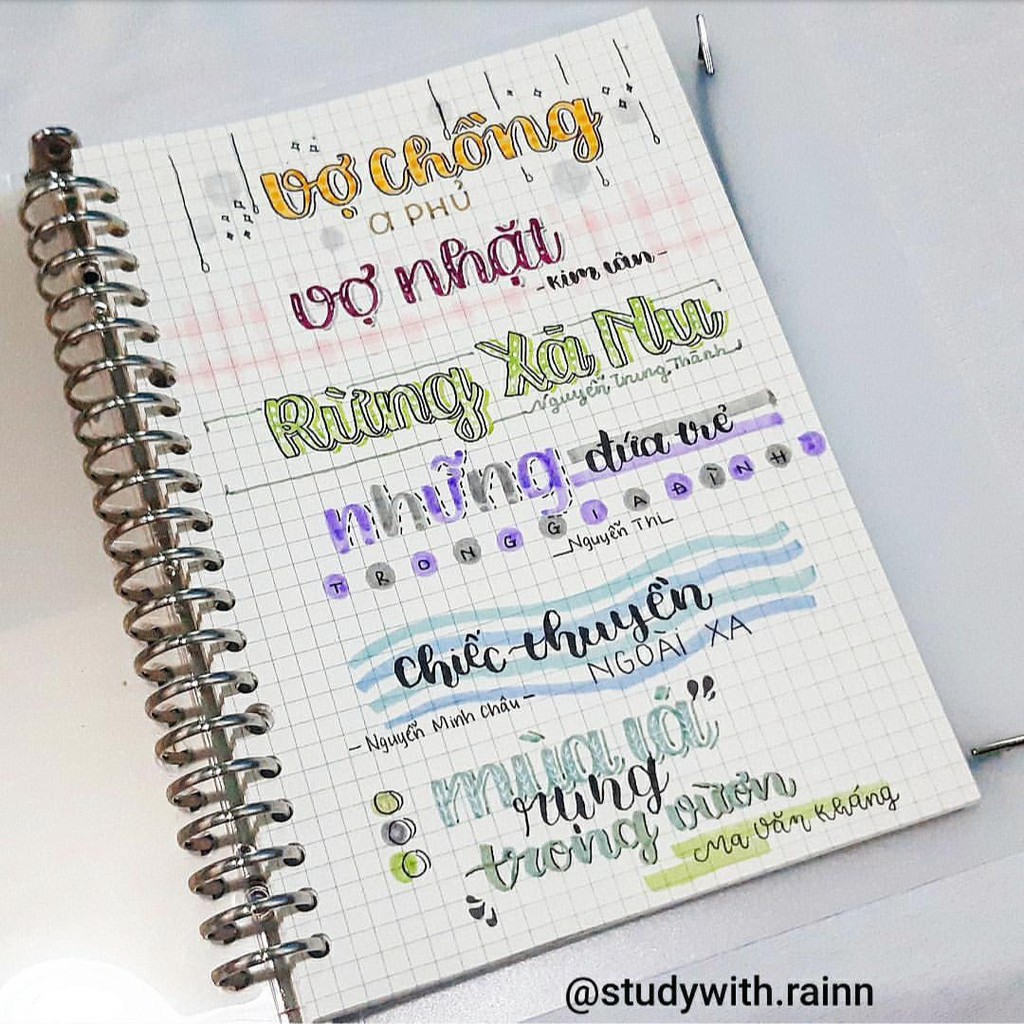 vợ chồng
A PHỦ
vợ nhặt
- Kim Lân -
Rừng Xà Nu
Nguyễn Trung Thành
những đứa trẻ
TRONG GIA ĐÌNH
Nguyễn Thi
chiếc thuyền
NGOÀI XA
- Nguyễn Minh Châu -
mùa lá
rụng
trong vườn
Ma Văn Kháng
@studywith.rainn